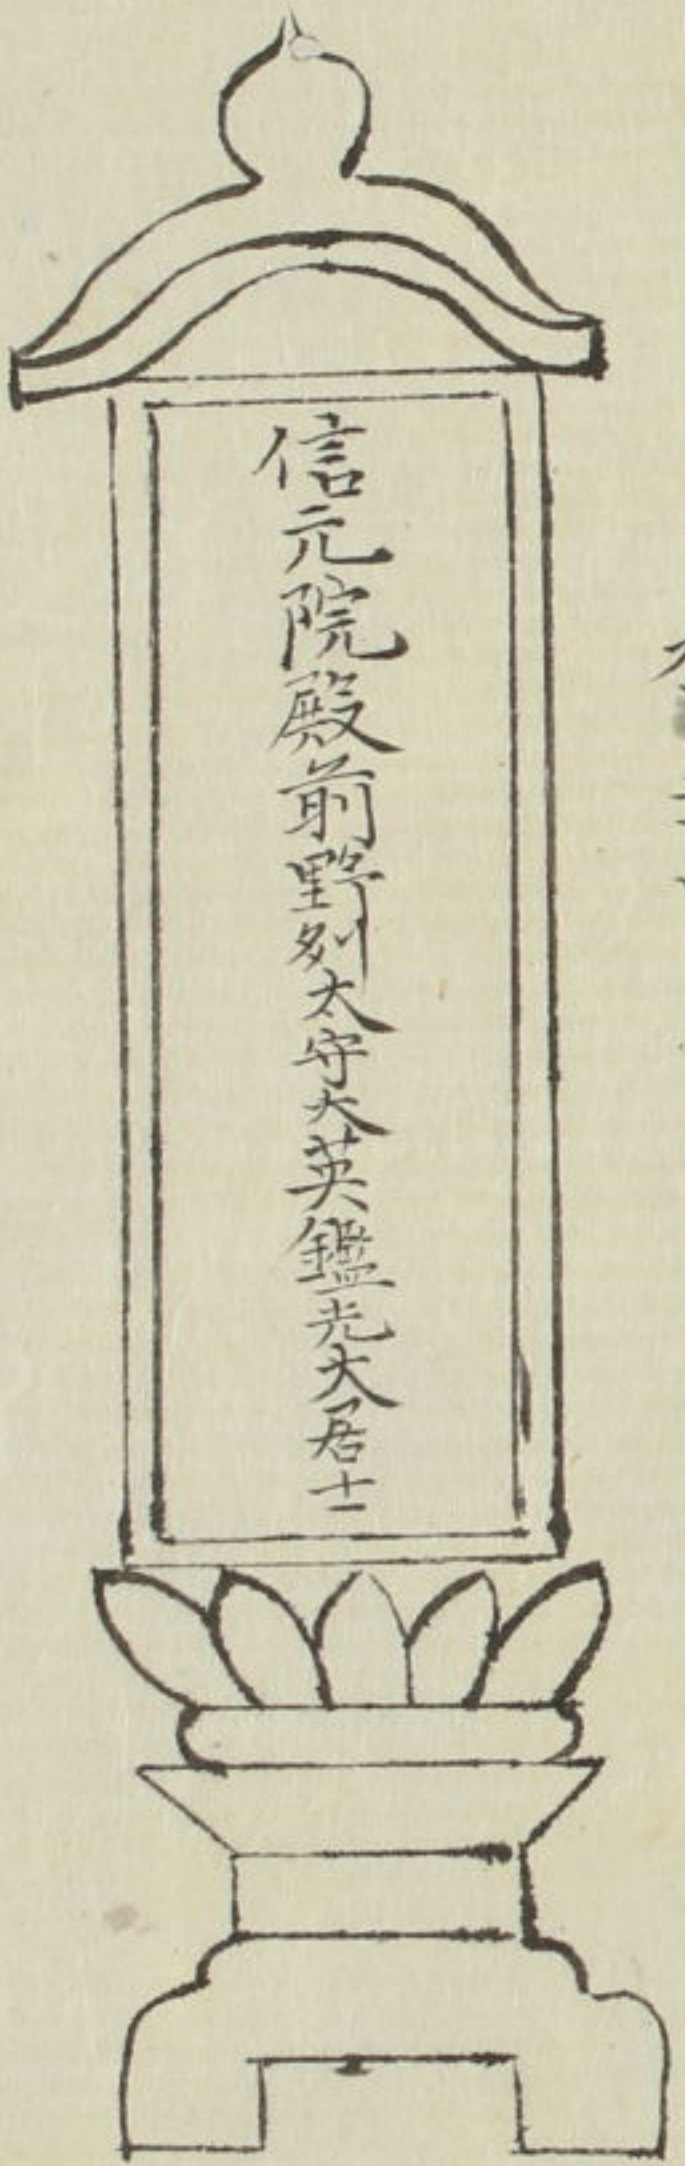 信元院殿前野州太守大英鑑光大居士